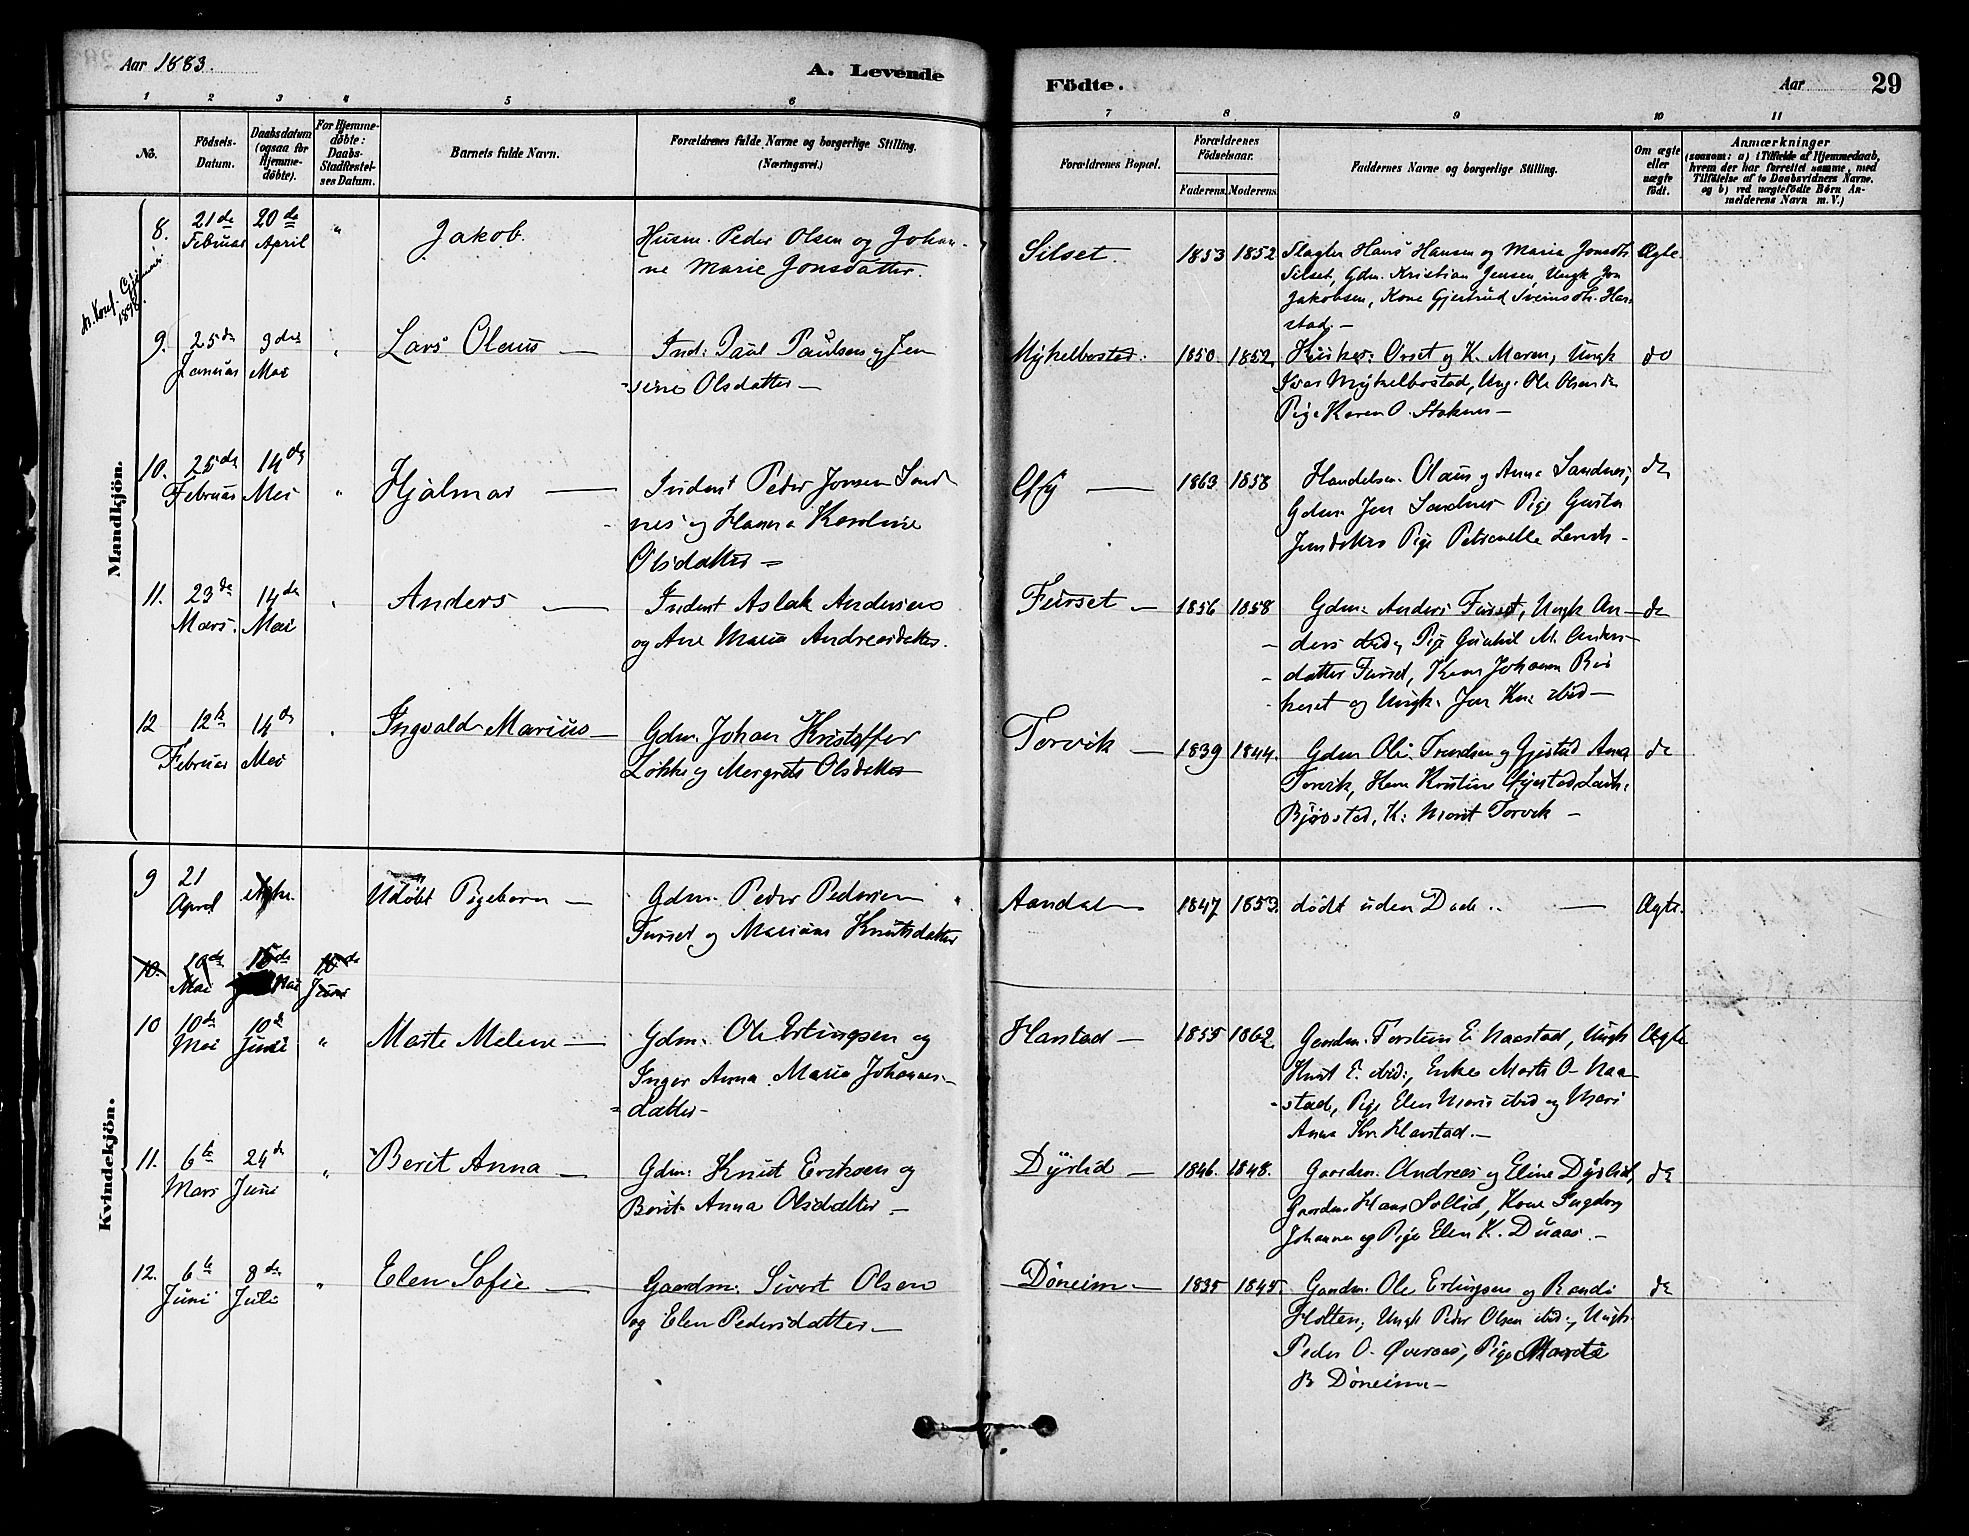 Aar 1883.
A. Levende
Födte.
Aar
29
1 2 3 4 5 6 7 8 9 10 11
No.
Födsels-Datum.
Daabsdatum (ogsaa for Hjemmedöbte).
For Hjemmedöbte: Daabs-Stadfæstelses Datum.
Barnets fulde Navn.
Forældrenes fulde Navne og borgerlige Stilling. (Næringsvei.)
Forældrenes Bopæl.
Forældrenes Födselsaar.
Faderens. Moderens.
Faddernes Navne og borgerlige Stilling.
Om ægte eller uægte födt.
Anmærkninger
(saasom: a) i Tilfælde af Hjemmedaab, hvem der har forrettet samme, med Tilföielse af to Daabsvidners Navne. og b) ved uægtefödte Börn Anmelderens Navn m. V.)
Mandkjön.
8. 21de Februar 20de April " Jakob.
Husm. Peder Olsen og Johan-
ne Marie Jonsdatter.
Silset. 1853 1852
Slagter Hans Hansen og Marie Jonsdtr
Silset, Gdm. Kristian Jensen, Ungk. Jon
Jakobsen, Kone Gjertrud Sveinsdtr. Har-
stad.-
Ægte.
9. 25de Januar 3die Mai " Lars Olaus —
Ind: Paul Paulsen og Jen
-sine Olsdatter —
Mykelbostad. 1850. 1852
Orset og K. Maren, Ungk
Ivar Mykelbostad, Ung. Ole Olsen do
Pige Karen O. Stoknes —
do
10. 25de Februar 14de Mai " Hjalmar —
Inderst Peder Jonsen Sand
nes og Hanna Karoline
Olsdatter —
1863 1858
Handelsm. Olaus og Anna Sandnes,
Gdm. Jon Sandnes Pige
Pige Petronelle
do
11. 23de Mars. 14de Mai " Anders —
Inderst Aslak Andersen
og Ane Maria Andreasdatter.
Furset — 1856 1858
Gdm: Anders Furset, Ungk An-
ders ibid, Pige Gunhil M. Anders-
datter Furset, Kone Johanna
og Ungk. Jon Kn. ibid —
do
12 12te Februar 14de Mai " Ingvald Marius —
Gdm. Johan Kristoffer
Løkke og Mergrete Olsdatter
Torvik — 1839 1844.
Gdm Ole Trondsen og Gjertrud Anna
Torvik, Kristine
K: Marit Torvik —
do
Kvindekjön.
9 21 April Udøbt Pigebarn —
Gdm. Peder Pedersen
Furset og Mariane Knutsdatter
Aandal 1847 1853.
dødt uden Daab. —
Ægte.
10. 10de Mai 15de Mai 10de Juni
10 10de Mai 10de Juni " Marte Melene —
Gdm: Ole Erlingsen og
Inger Anna Maria Johannes-
datter —
Harstad — 1855 1862
Gaardm. Torstein E. Naastad, Ungk
Knut E. ibid:, Enke Marte O. Naa-
-stad, Pige Elen Maris ibid og Mari
Anna Kn. Harstad.—
Ægte
11. 6te Mars 24de Juni " Berit Anna —
Gdm: Knut Eriksen og
Berit Anna Olsdatter —
Dyrlid — 1846. 1848.
Gaardm. Andreas og Eline Dyrlid,
Gaardm Hans Sollid, Kone Ingeborg
Johanna og Pige Elen K. Duaas.—
do
12. 6te Juni 8de Juli " Elen Sofie —
Gaardm: Sivert Olsen
og Elen Pedersdatter —
Döneim — 1835 1845.
Gaardm. Ole Erlingsen og Randi
Holten, Ungk Peder Olsen ibid, Ungk.
Peder O. Øveraas, Pige Marte
B Döneim —
do